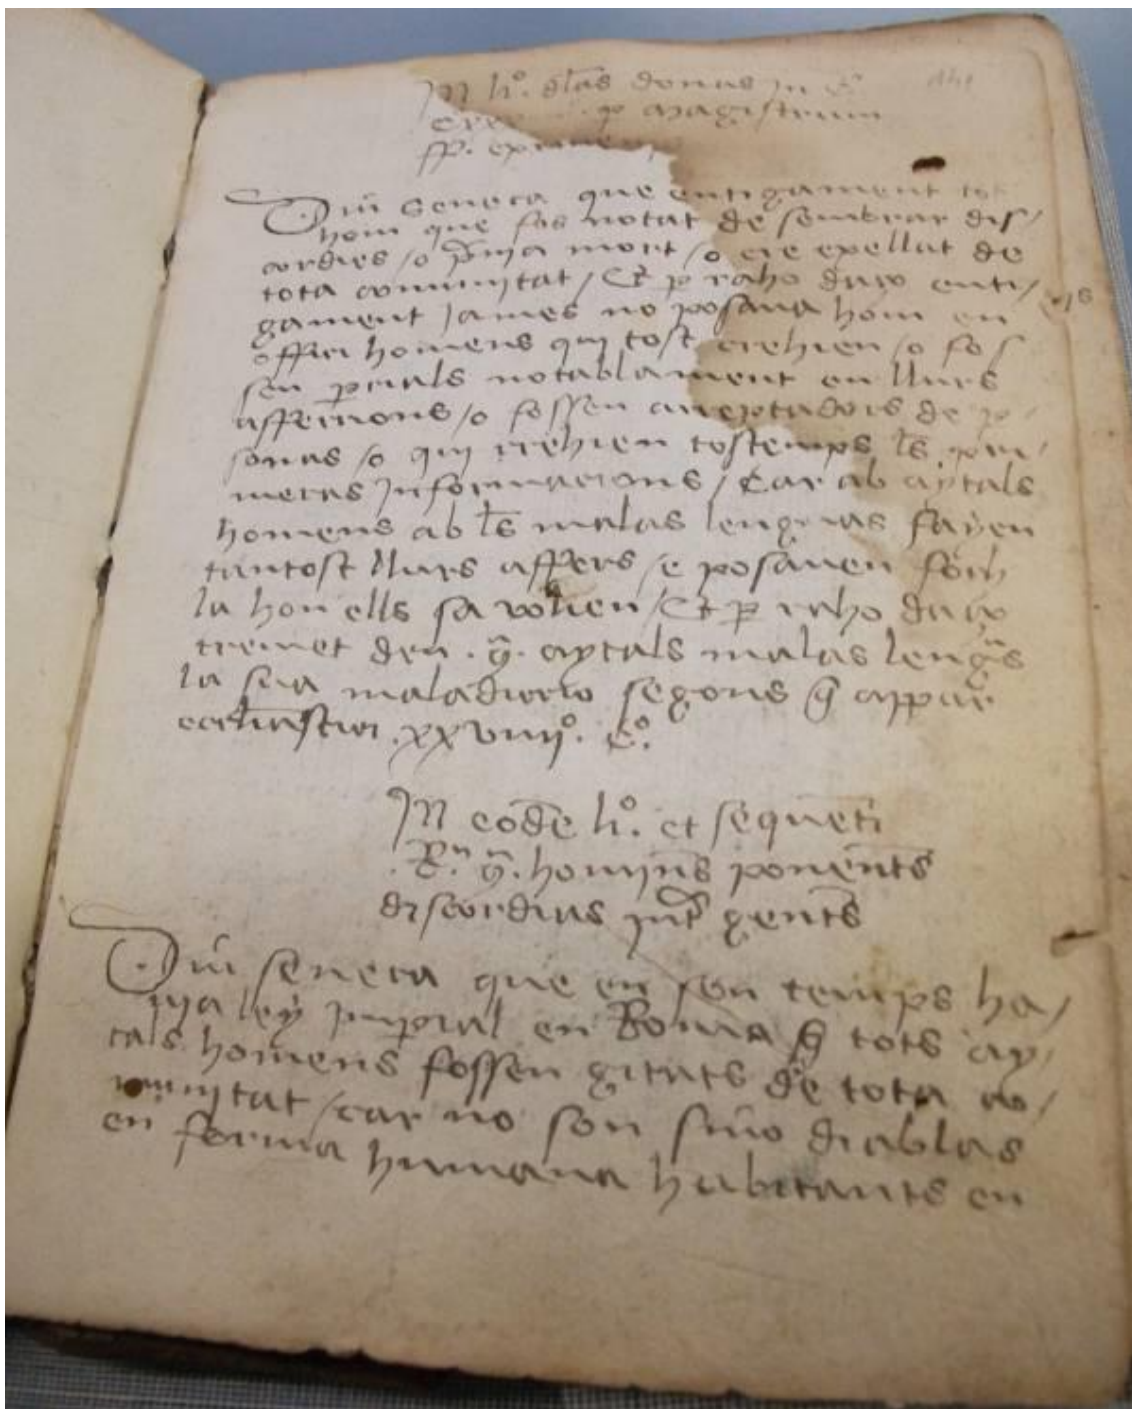 In li.º
magistrum
Diu Seneca que entigament tot
hom que fos notat de sembrar dis/
cordies /o p̄nia mort /o ere expellat de
tota comunitat / Et p̄ raho daço enti/
gament james no posaua hom en
offici homens qui tost crehien /o fos
sen p̄cials notablament en llurs
affeccions /o fossen acceptadors de p̄
sonas /o qui crehien tostemps l̄s pri/
meras jnformacions / Car ab aytals
homens ab l̄s malas lenguas fayen
tantost llurs affers /e posauen
la hon ells sa volien / Et p̄ raho daço
tremet deu .q̄. aytals malas leng̃s
la sua maladiccio segons q̄ appar̄
.xxviiijº. cº.
In eod̄e li.º et sequēti
.q̄. homin̄s ponent̄s
discordias jnt̄ gent̄s
Diu seneca que en son temps ha/
uia ley jmp̄ial en Roma q̄ tots ay/
tals homens fossen gitats de tota co/
munitat /car no son sino diablas
en forma humana habitants en